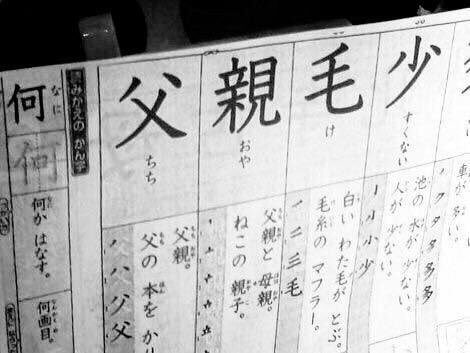 車が 多い。
少
すくない
池の 水が 少ない。
人が 少ない。
小 少
毛
け
白い わた毛が とぶ。
毛糸の マフラー。
二 三 毛
親
おや
父親と 母親。
ねこの 親子。
父
ちち
父親。
父の 本を かり
父
読みかえの かん字
何
なに
何
何か はなす。
何画目。